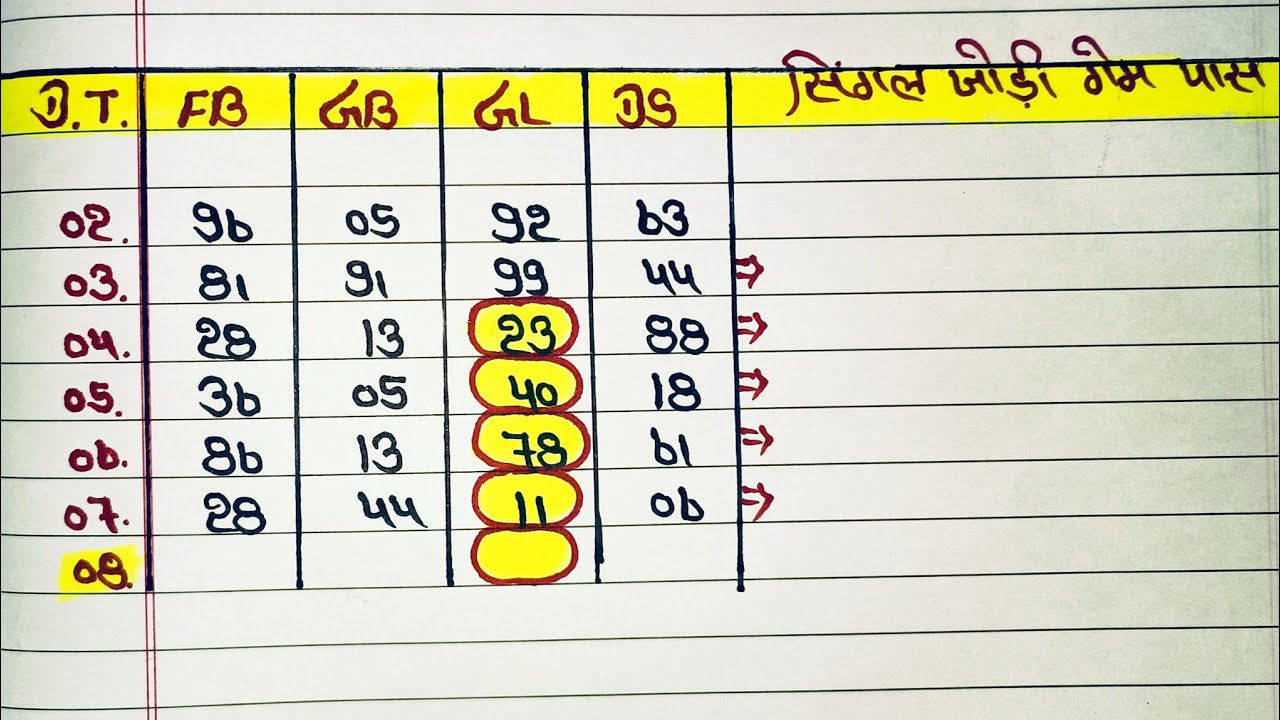 सिंगल जोड़ी गेम पास
D.T. FB GB GL DS
02. 96 05 92 63
03. 81 91 99 44 ⇒
04. 28 13 23 88 ⇒
05. 36 05 40 18 ⇒
06. 86 13 78 61 ⇒
07. 28 44 11 06 ⇒
08.